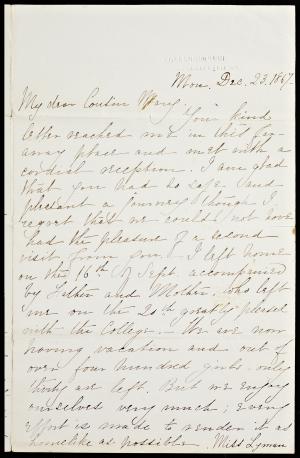 Mon. Dec. 23. 1867.
My dear Cousin Mary,
Your kind
letter reached me in this far-
away place and met with a
cordial reception. I am glad
that you had so safe and
pleasant a journey though I
regret that we could not have
had the pleasure of a second
visit from you. I left home
on the 16th of Sept. accompanied
by Father and Mother, who left
me on the 20th greatly pleased
with the College. We are now
having vacation and out of
over four hundred girls only
thirty are left. But we enjoy
ourselves very much; every
effort is made to render it as
homelike as possible. Miss Lyman